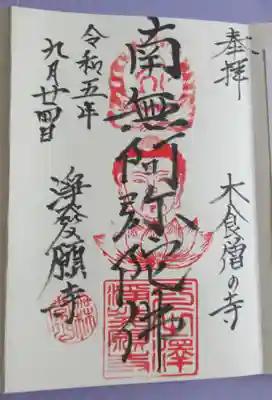 奉拝
木食僧の寺
南無阿弥陀佛
令和五年
九月廿四日
發願寺